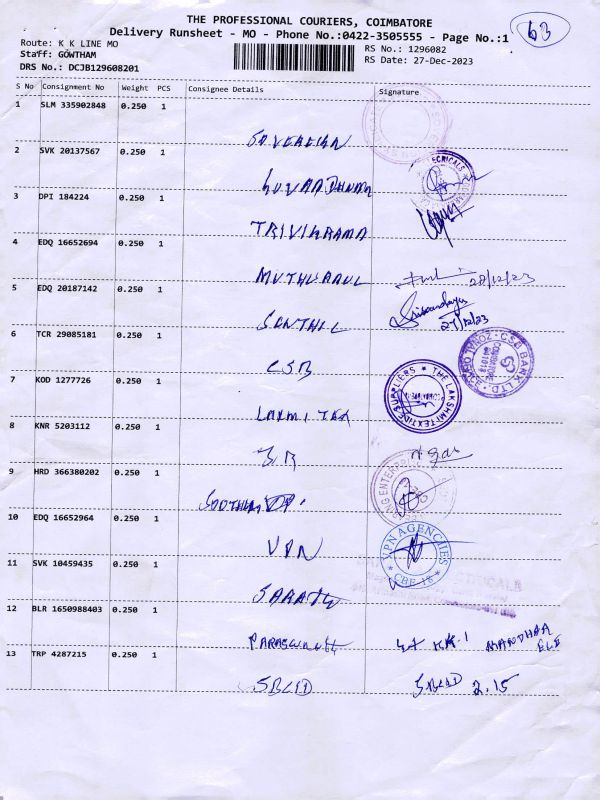 THE PROFESSIONAL COURIERS, COIMBATORE
Delivery Runsheet - MO - Phone No.:0422-3505555 - Page No.:1
63
Route: K K LINE MO
Staff: GOWTHAM
DRS No.: DCJB129608201
RS No.: 1296082
RS Date: 27-Dec-2023
S No Consignment No Weight PCS Consignee Details Signature
1 SLM 335902848 0.250 1
SOVEREIGN
2 SVK 20137567 0.250 1
3 DPI 184224 0.250 1
TRIVIKRAMA
4 EDQ 16652694 0.250 1
28/12/23
5 EDQ 20187142 0.250 1
SENTHIL
27/12/23
6 TCR 29085181 0.250 1
CSB
CSB BANK LTD.
7 KOD 1277726 0.250 1
LAXMI TEX
THE LAKSHMI TEXTILE SUPPLIERS
8 KNR 5203112 0.250 1
9 HRD 366380202 0.250 1
10 EDQ 16652964 0.250 1
VPN
VPN AGENCIES
CBE-18
11 SVK 10459435 0.250 1
12 BLR 1650988403 0.250 1
13 TRP 4287215 0.250 1
2.15